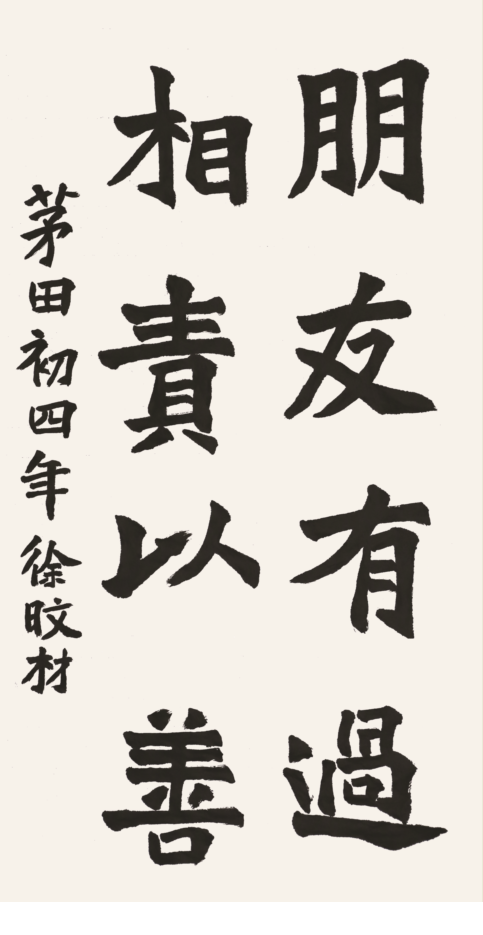 朋友有過
相責以善
茅田初四年徐旼材